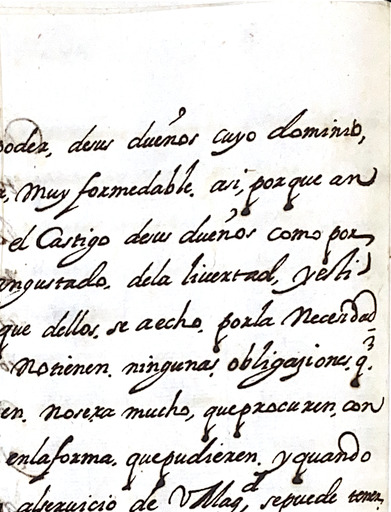 poder, desus dueños cuyo dominio,
Muy formedable. asi, porque an
el Castigo desus dueños como por
angustado. dela livertad, y esti
que dellos, se a echo. porla Necesdad
Notienen. ningunas obligasiones. q.ᵉ
en. Nosera mucho, queprocuren, con
enlaforma. quepudieren. y quando
alservicio de VMagᵈ, sepuede tener,